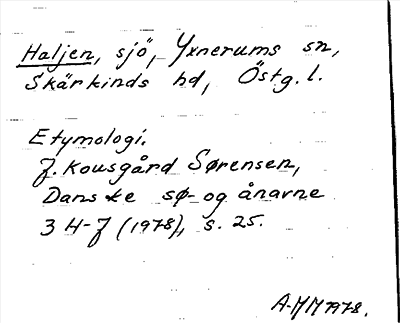 Haljen, sjö, Yxnerums sn,
Skärkinds hd, Östg. l.
Etymologi.
J. Kousgård Sørensen,
Danske sø- og ånavne
3 H-J (1978), s. 25.
A-MM 1978.